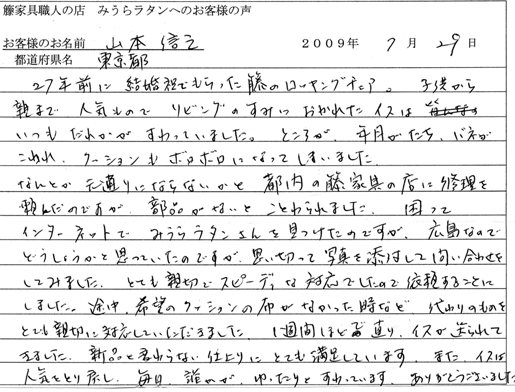 籐家具職人の店 みうらラタンへのお客様の声
お客様のお名前 山本信之 2009年 7月29日
都道府県名 東京都
27年前に結婚祝でもらった籐のロッキングチェア。子供から
親まで人気もので リビングのすみにおかれたイスは
いつもだれかがすわっていました。ところが、年月がたち、バネが
こわれ、クーションもボロボロになってしまいました。
なんとか元通りにならないかと都内の籐家具の店に修理を
頼んだのですが、部品がないとことわられました。困って
インターネットでみうらラタンさんを見つけたのですが、広島なので
どうしようかと思っていたのですが、思い切って写真を添付して問い合わせを
してみました。とても親切でスピーディな対応でしたので依頼することに
しました。途中、希望のクッションの布がなかった時など 代わりのものを
とても親切に対応していただきました。1週間ほどで直り、イスが送られて
きました。新品と変わらない仕上りにとても満足しています。また、イスは
人気をとり戻し、毎日、誰かが ゆったりとすわっています。ありがとうございました